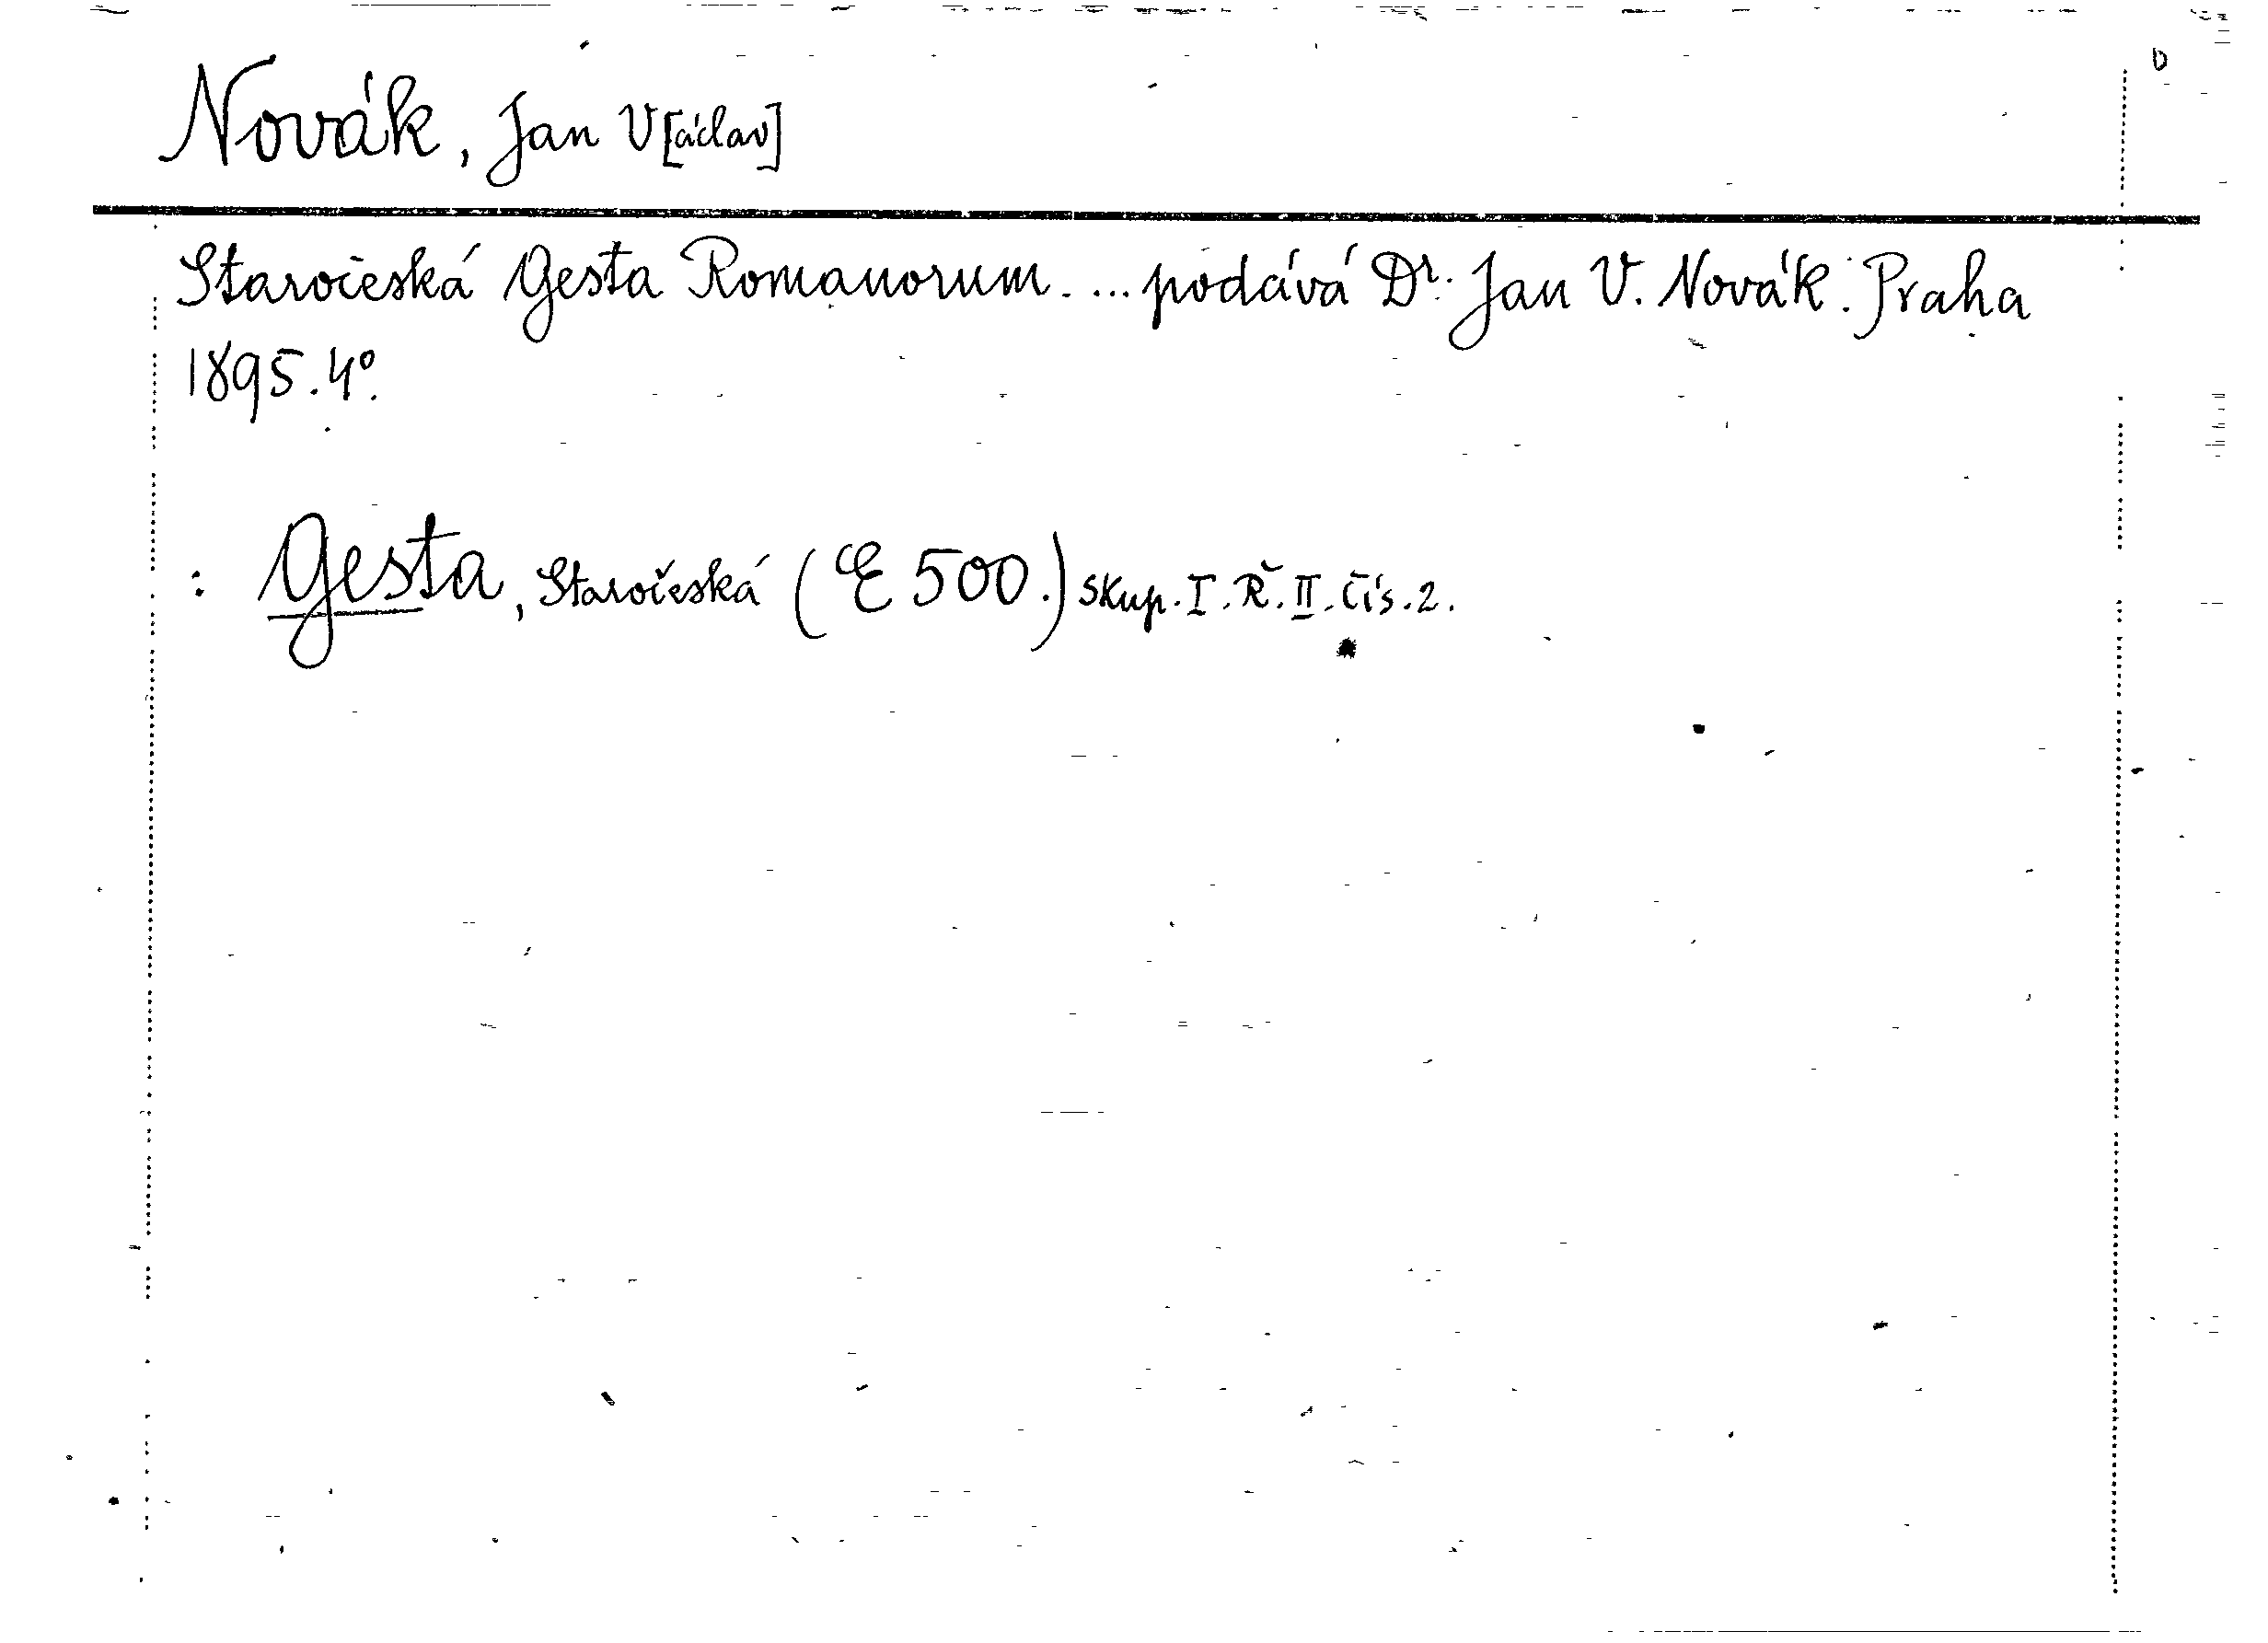 D
Novák, Jan V[áclav]
Staročeská Gesta Romanorum. ... podává Dr. Jan V. Novák. Praha
1895. 4º.
: Gesta, Staročeská (E 500.) skup. I. Ř. II. čís. 2.